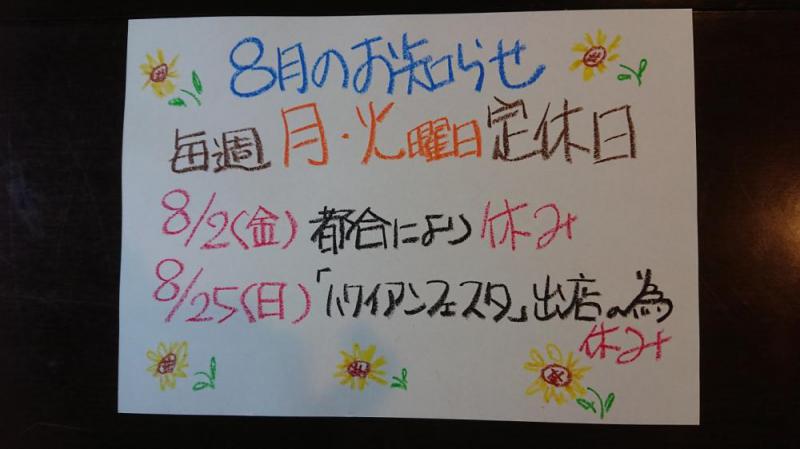 8月のお知らせ
毎週 月・火曜日定休日
8/2(金) 都合により 休み
8/25(日)「ハワイアンフェスタ」出店の為
休み